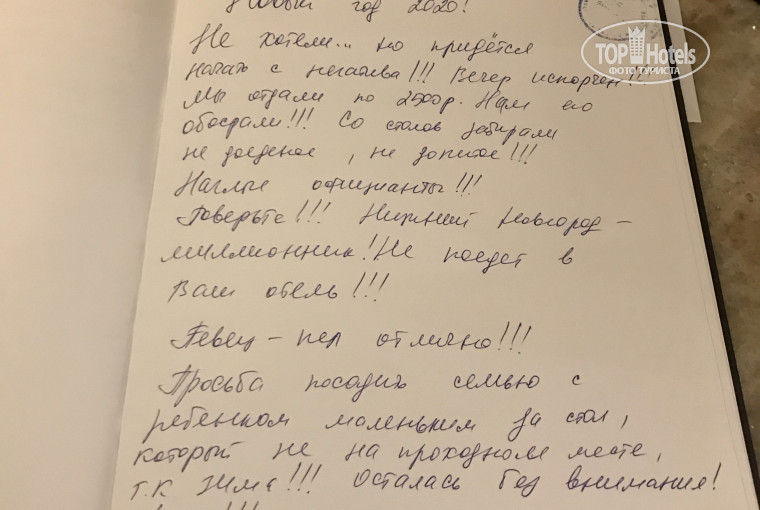 Новый год 2020!
Не хотели... но придётся
начать с негатива!!! Вечер испорчен!!!
Мы отдали по 2500р. Нам его
обосрали!!! Со столов забирали
не доеденое, не допитое!!!
Наглые официанты!!!
Поверьте!!! Нижний Новгород -
миллионник! Не поедет в
Ваш отель!!!
Певец - пел отлично!!!
Просьба посадить семью с
ребенком маленьким за стол,
который не на проходном месте,
т.к зима!!! Осталась без внимания!
TOP Hotels
ФОТО ТУРИСТА